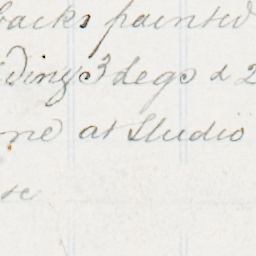 backs painted
ding 3 Legs & 2
me at Studio
se